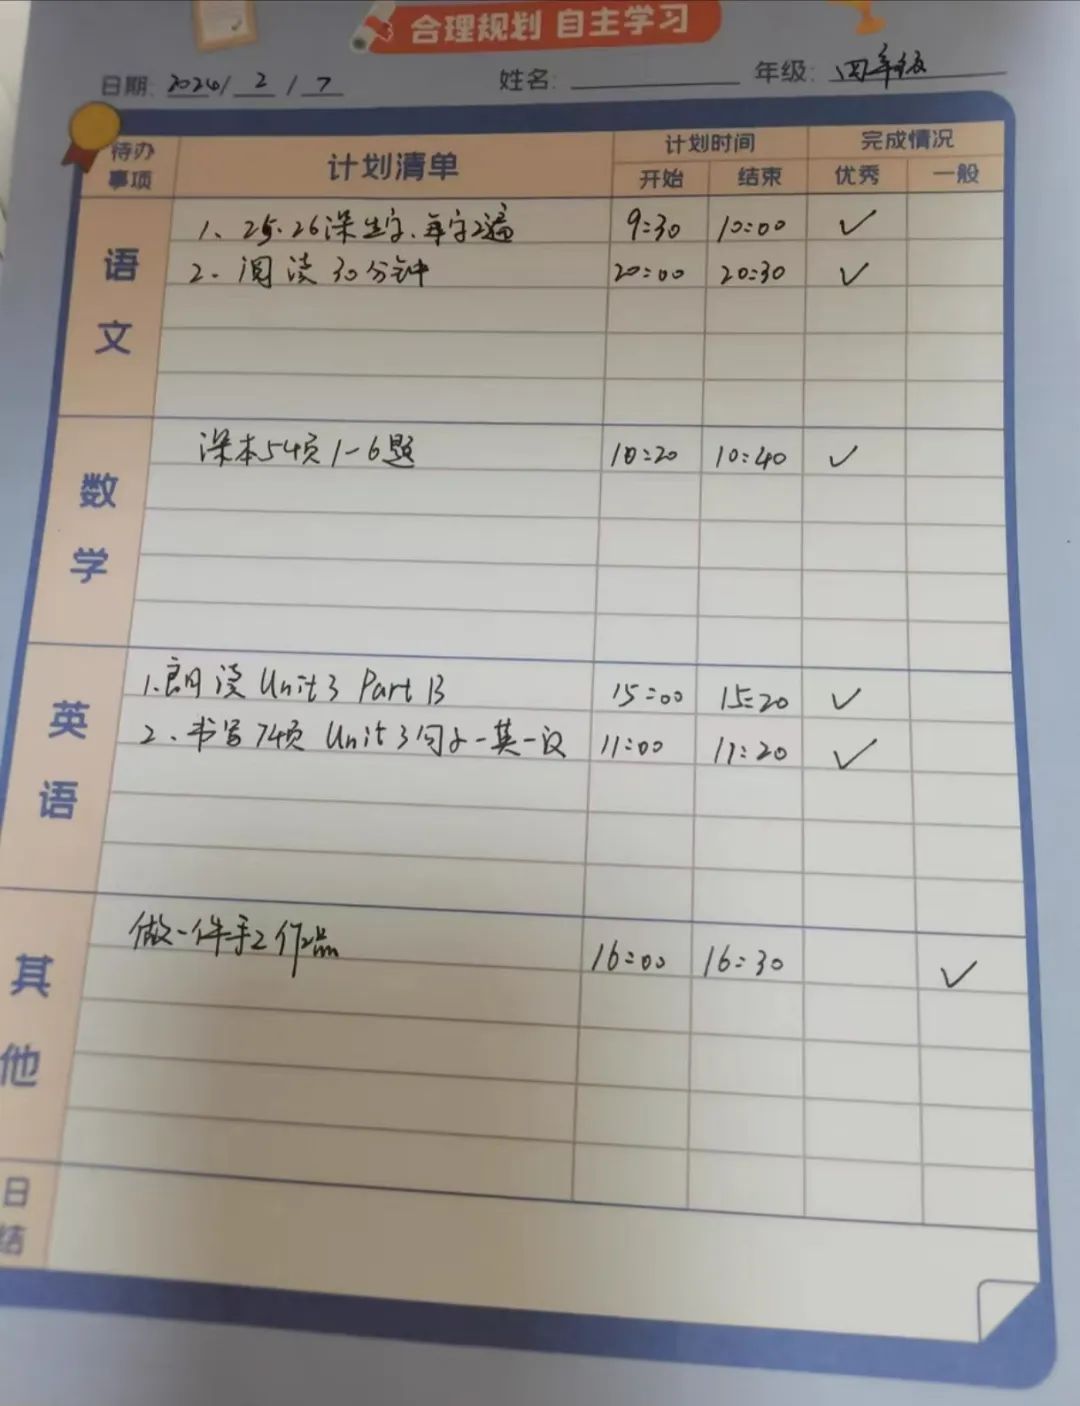 合理规划 自主学习
日期: 2026/ 2 / 7 姓名: 年级: 四年级
待办事项 计划清单 计划时间 完成情况
开始 结束 优秀 一般
语文
1、25、26课生字、每字2遍 9:30 10:00 ✓
2、阅读30分钟 20:00 20:30 ✓
数学
课本54页1-6题 10:20 10:40 ✓
英语
1.朗读 Unit3 Part B 15:00 15:20 ✓
2、书写74页 Unit3句子一英一汉 11:00 11:20 ✓
其他
做一件手工作品 16:00 16:30 ✓
日结